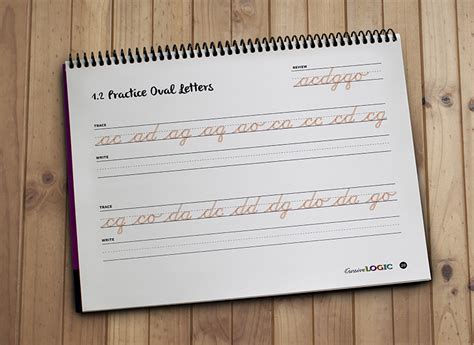 REVIEW
acdgqo
1.2 Practice Oval Letters
TRACE
ac ad ag aq ao ca cc cd cg
WRITE
TRACE
cq co da dc dd dg do da go
WRITE
Cursive LOGIC